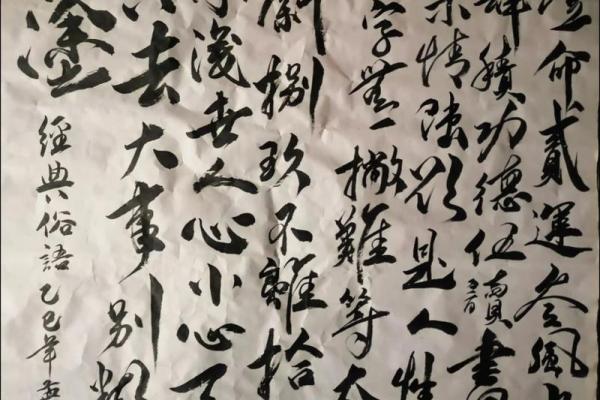 命貳運叁風
積功德伍讀書
柒情陸欲是人性
字無一撇難等大
捌玖不離拾
淺世人心小心不
去大事別糊
塗
經典俗語乙巳年